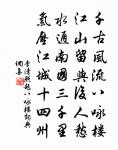 千古風流八咏樓
江山留與後人愁
水通南國三千里
氣壓江城十四州
李清照題八咏樓詞典
網集